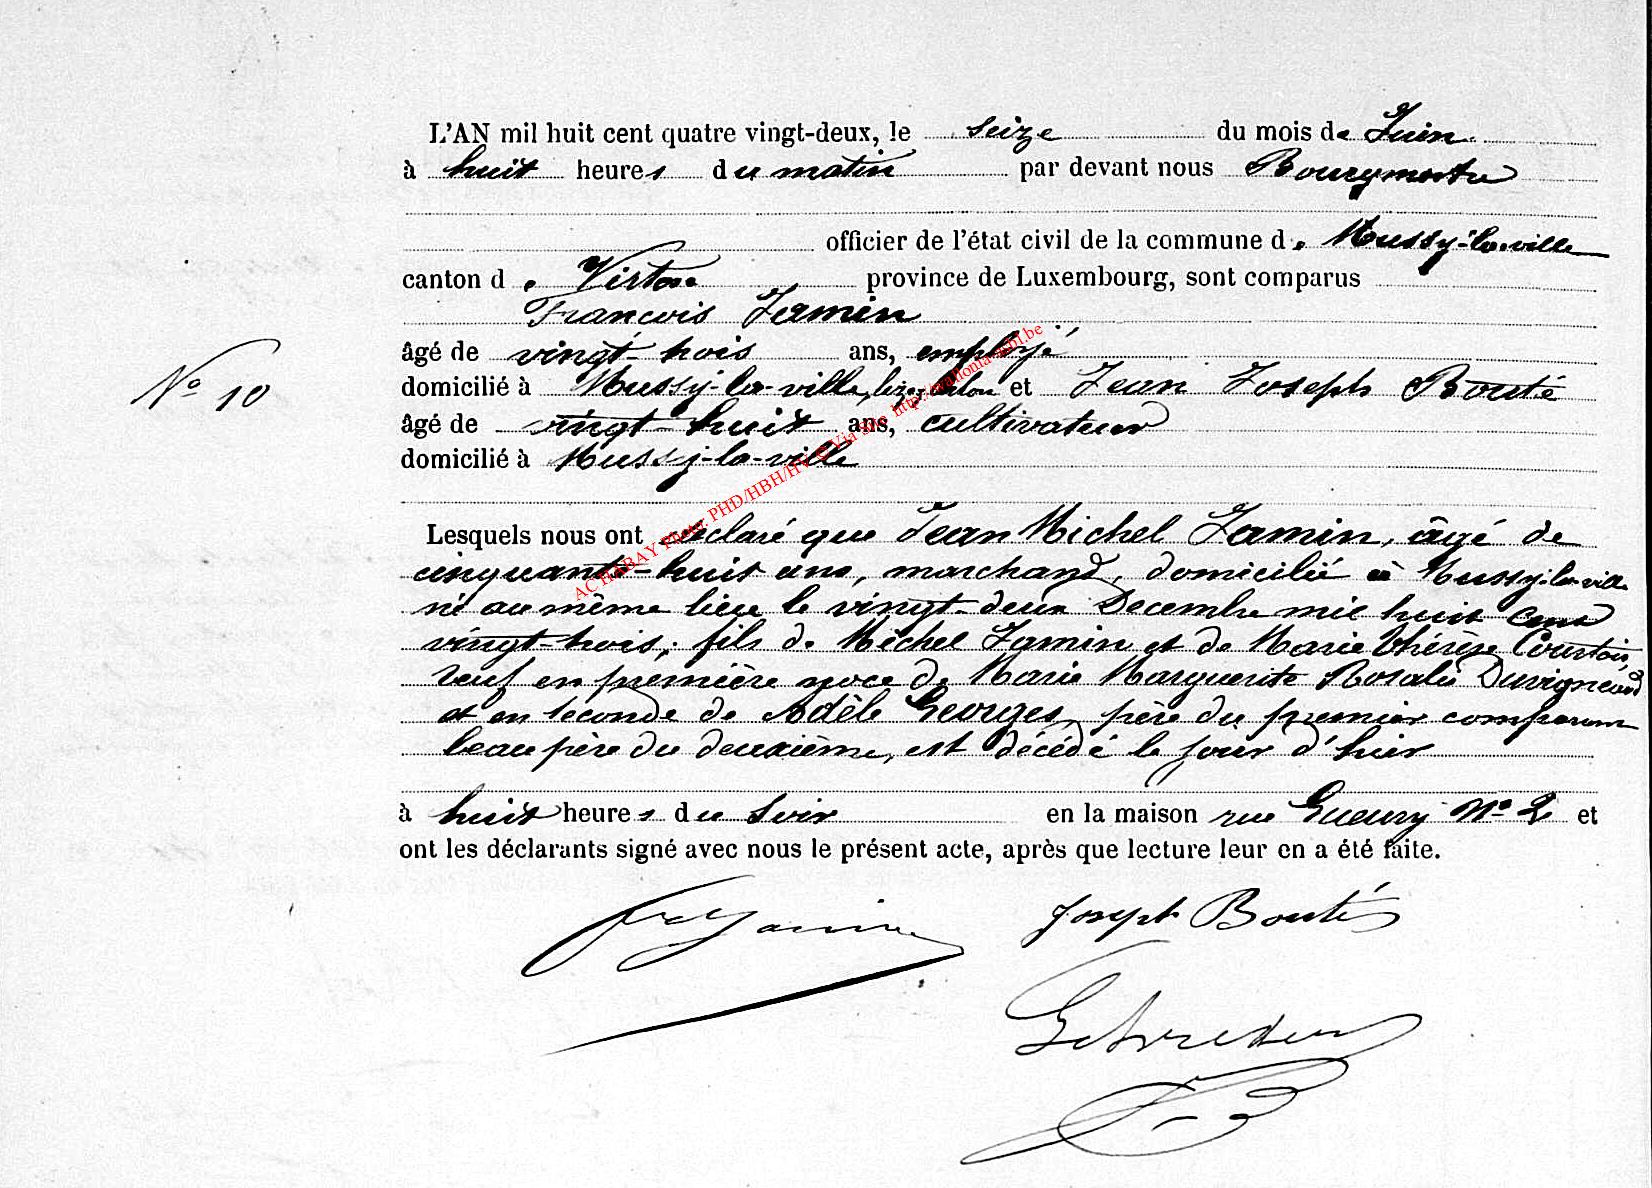 L'AN mil huit cent quatre vingt-deux, le seize du mois de Juin
à huit heures du matin par devant nous Bourgmestre
officier de l'état civil de la commune de Mussy-la-ville
canton de Virton province de Luxembourg, sont comparus
François Jamin
âgé de vingt-trois ans, employé
domicilié à Mussy-la-ville, et Jean Joseph Bouté
âgé de vingt-huit ans, cultivateur
domicilié à Mussy-la-ville
N° 10
Lesquels nous ont déclaré que Jean Michel Jamin, âgé de
cinquante-huit ans, marchand, domicilié à Mussy-la-ville
né au même lieu le vingt-deux Decembre mil huit cent
vingt-trois, fils de Michel Jamin et de Marie Thérèse Courtois,
veuf en première noce de Marie Marguerite Rosalie Duvigneaud
et en seconde de Adèle Georges, père du premier comparant
beau père du deuxième, est décédé le jour d'hier
à huit heures du soir en la maison rue Gueury N° 2 et
ont les déclarants signé avec nous le présent acte, après que lecture leur en a été faite.
Jamin
Joseph Bouté
AC HABAY Photo. PHD/HBH/HV © Via Site http://wallonia-mbl.be